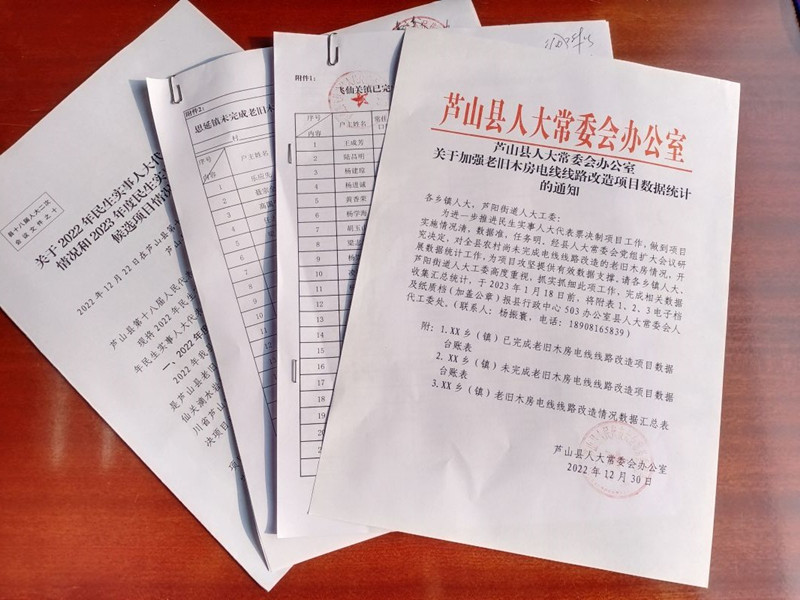 县十八届人大二次
会议文件之十
关于2022年民生实事人大代
情况和2023年度民生实
候选项目情况
2022年12月22日在芦山县第
芦山县第十八届人民代表
现将2022年民生实
年民生实事人大代表
一、2022年民
2022年我
是芦山县老旧
仙关滴水
川省芦山
决项目
附件2:
思延镇未完成老旧木
村
序号
户主姓名
内容
1
2
3
4
5
附件1:
飞仙关镇已完
序号
户主姓名
内容
1
王成芳
2
陆昌明
3
杨建琼
4
杨进诚
5
黄香荣
6
杨学海
7
8
9
10
11
12
13
14
15
16
17
18
19
20
芦山县人大常委会办公室
芦山县人大常委会办公室
关于加强老旧木房电线线路改造项目数据统计
的通知
各乡镇人大，芦阳街道人大工委：
为进一步推进民生实事人大代表票决制项目工作，做到项目
实施情况清，数据准，任务明，经县人大常委会党组扩大会议研
究决定，对全县农村尚未完成电线线路改造的老旧木房情况，开
展数据统计工作，为项目攻坚提供有效数据支撑。请各乡镇人大、
芦阳街道人大工委高度重视，抓实抓细此项工作，完成相关数据
收集汇总统计，于2023年1月18日前，将附表1、2、3电子档
及纸质档（加盖公章）报县行政中心503办公室县人大常委会人
代工委处。（联系人：杨振寰，电话：18908165839）
附：1.XX乡（镇）已完成老旧木房电线线路改造项目数据
台账表
2.XX乡（镇）未完成老旧木房电线线路改造项目数据
台账表
3.XX乡（镇）老旧木房电线线路改造情况数据汇总表
芦山县人大常委会办公室
2022年12月30日